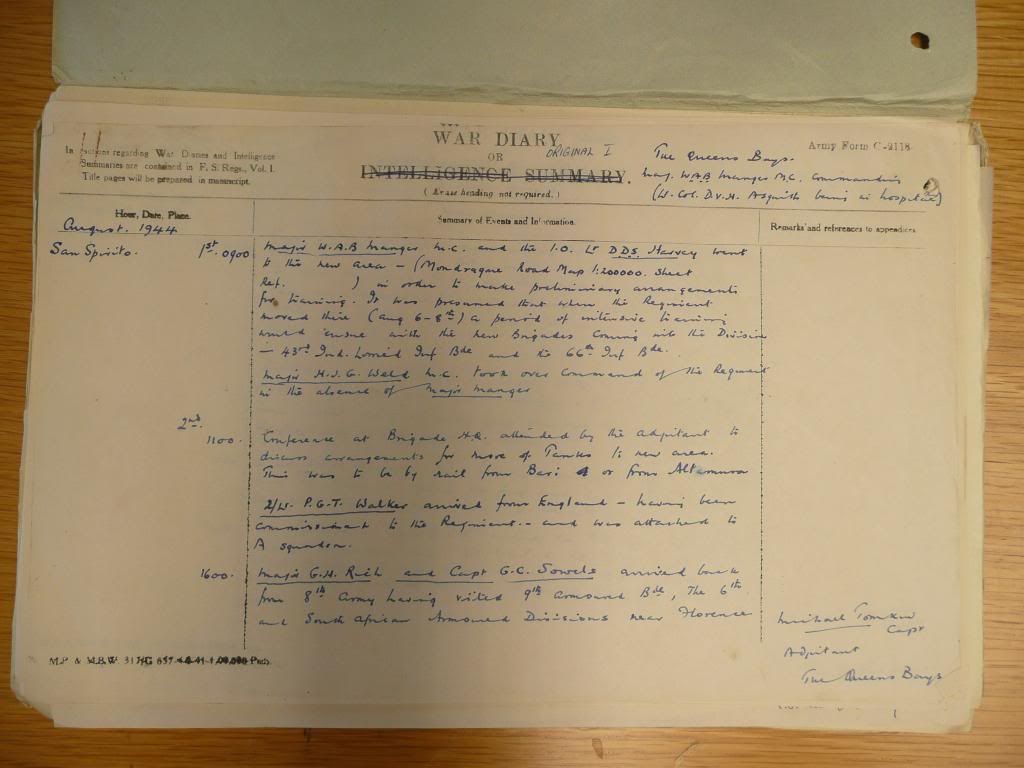 WAR DIARY
OR
ORIGINAL I
INTELLIGENCE SUMMARY.
(Erase heading not required.)
regarding War Diaries and Intelligence
Summaries are contained in F. S. Regs., Vol. I.
Title pages will be prepared in manuscript.
Army Form C-2118
The Queens Bays.
Maj. W.A.B Manger M.C. Commanding
(Lt. Col. D.V.H. Asquith being in hospital)
Hour, Date, Place.
Summary of Events and Information.
Remarks and references to appendices
August. 1944
San Spirito. 1st. 0900
Major W.A.B Manger M.C. and the I.O. Lt D.D.S. Harvey went
to the new area – (Mondragone Road Map 1:200000. Sheet
Ref. ) in order to make preliminary arrangements
for training. It was presumed that when the Regiment
moved there (Aug 6-8th) a period of intensive training
would ensue with the new Brigades coming into the Division
– 43rd Ind. Lorried Inf Bde and the 66th Inf Bde.
Major H.J.G. Weld M.C. took over command of the Regiment
in the absence of Major Manger
2nd.
1100.
Conference at Brigade H.Q. attended by the Adjutant to
discuss arrangements for move of Tanks to new area.
This was to be by rail from Bari or from Altamura
2/Lt. P.G.T. Walker arrived from England – having been
to the Regiment – and was attached to
A Squadron.
1600.
Major G.H. Rich and Capt G.C. arrived back
from 8th Army having visited 9th Armoured Bde, The 6th
and South African Armoured Divisions near Florence
Michael Tomkin
Capt
Adjutant
The Queens Bays
M.P. & M.B.W.